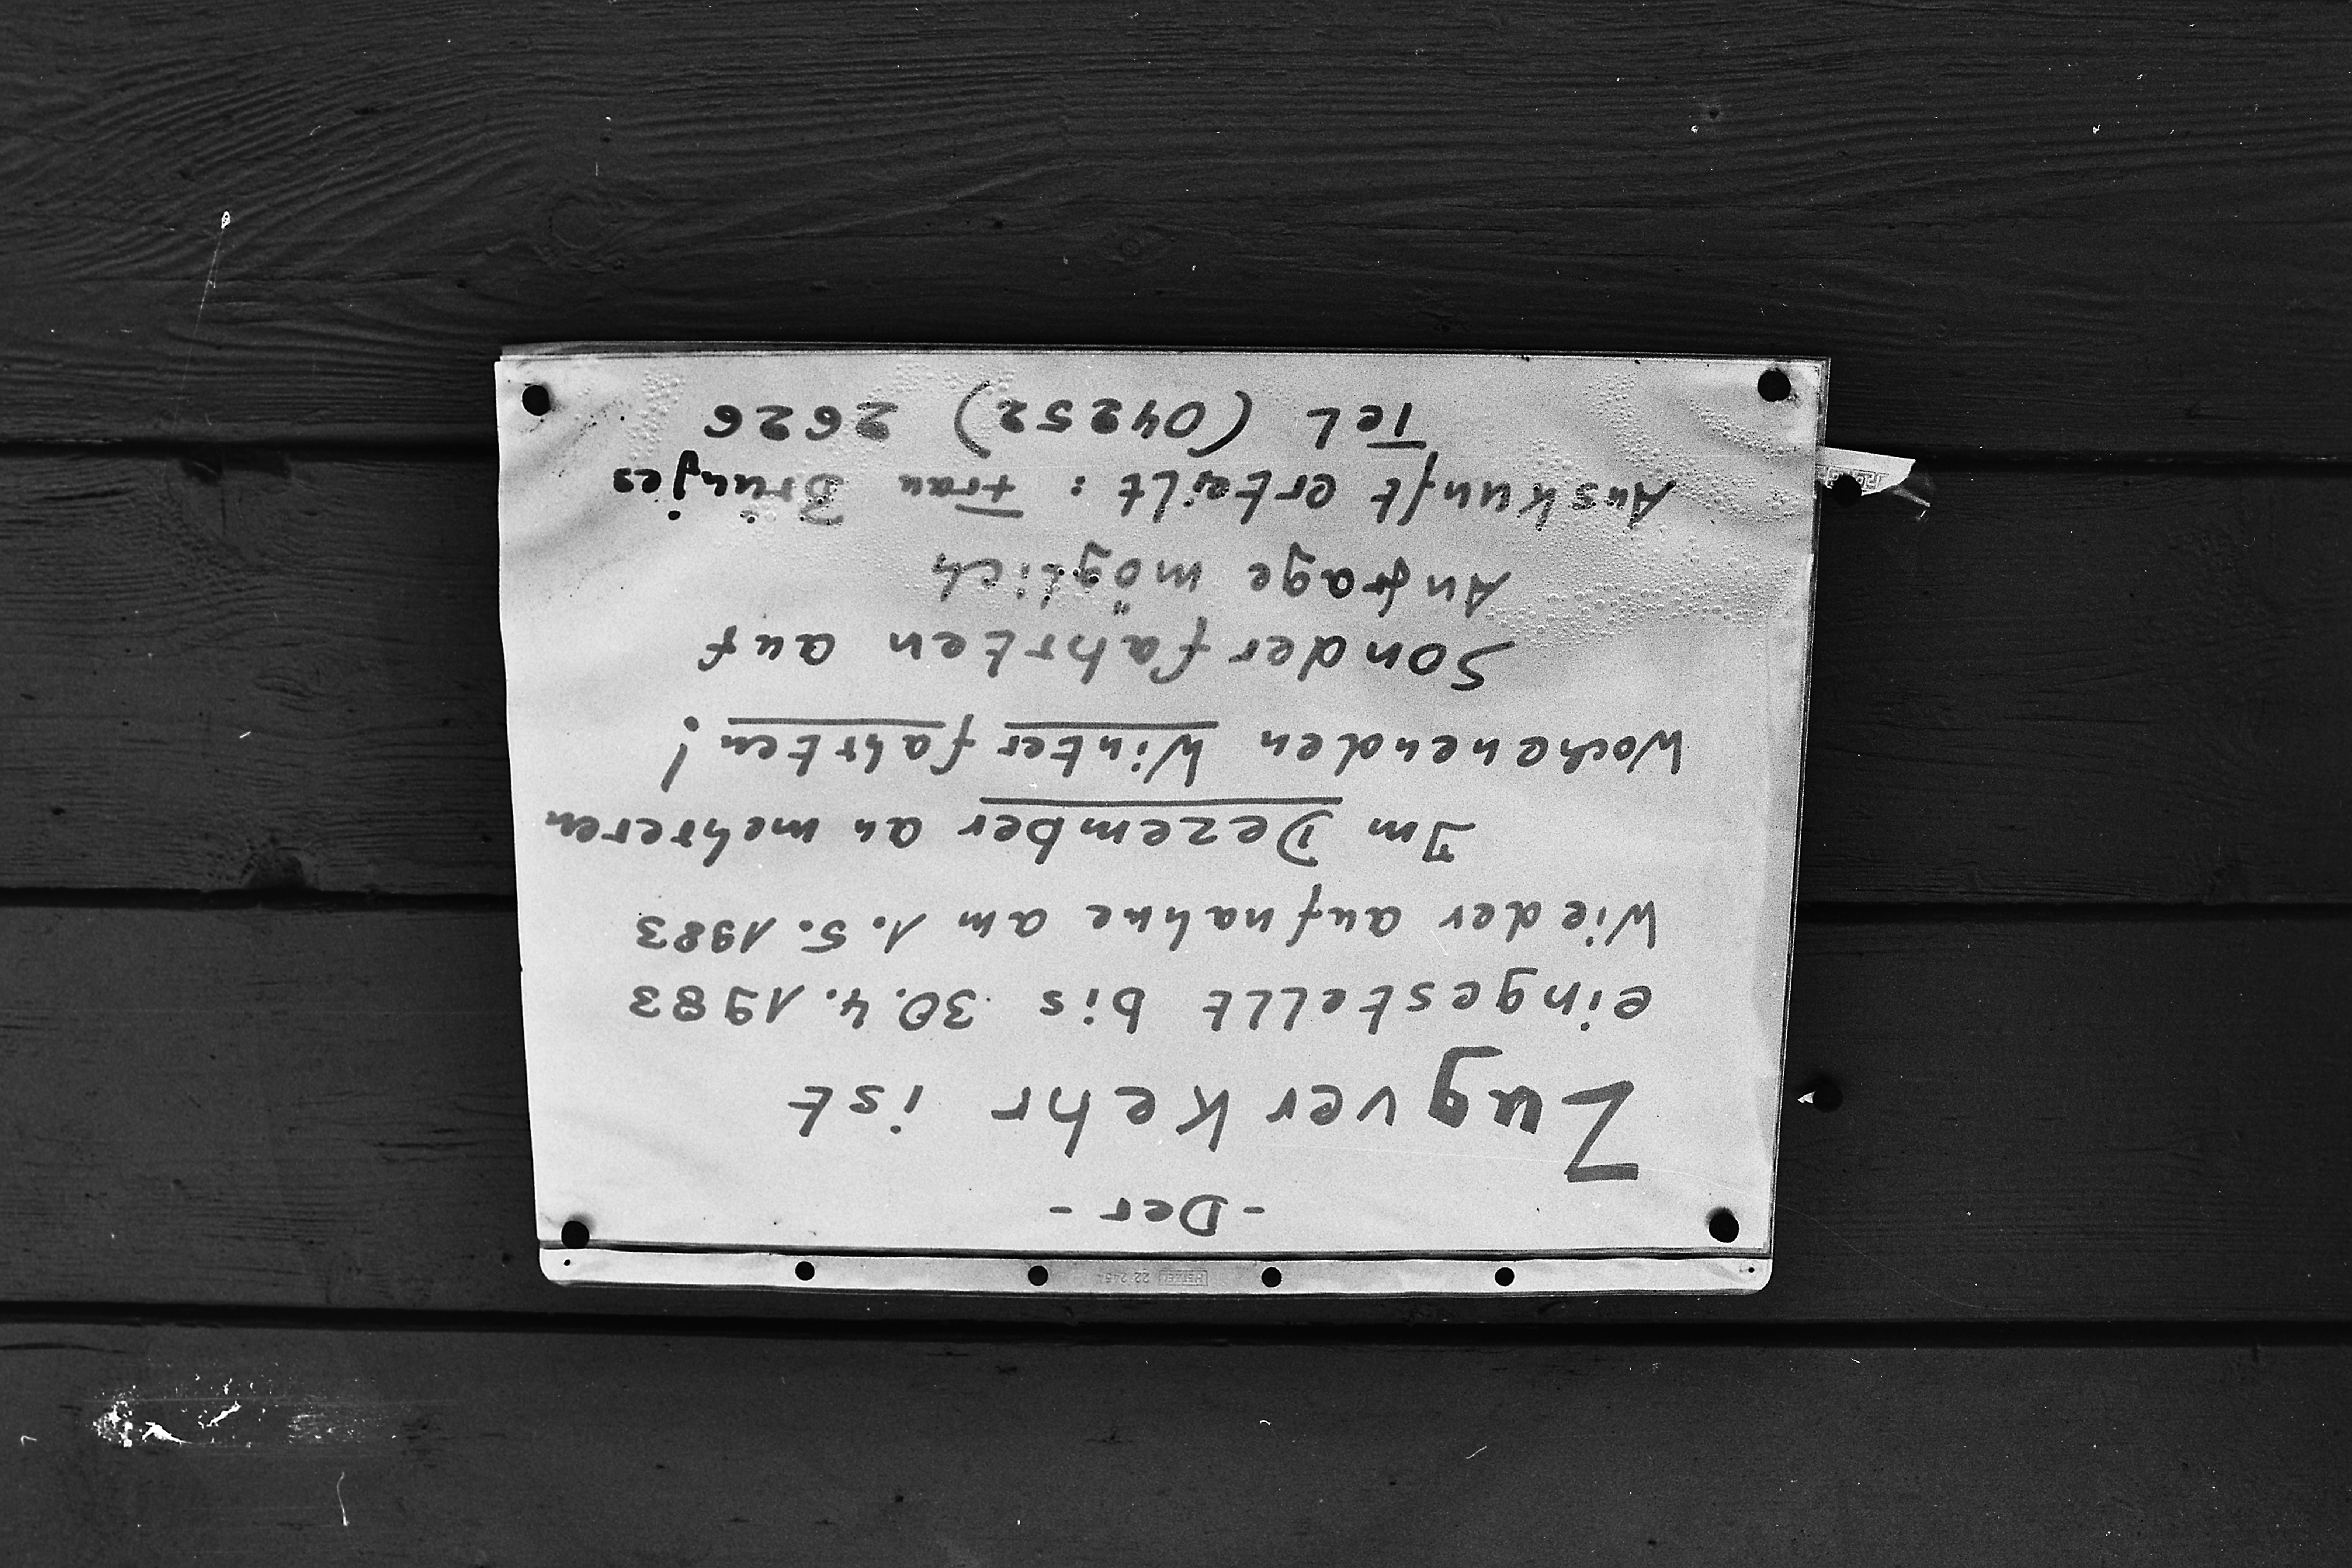 - Der -
Zugverkehr ist
eingestellt bis 30.4.1983
Wiederaufnahme am 1.5.1983
Im Dezember an mehreren
Wochenenden Winterfahrten!
Sonderfahrten auf
Anfrage möglich
Auskunft erteilt: Frau Brünjes
Tel (04252) 2626